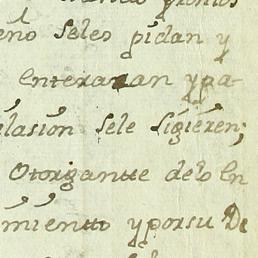 eno seles pidan y
enteraran ypa-
lasion sele sigieren;
Otorgante delo en
miento yporsu De